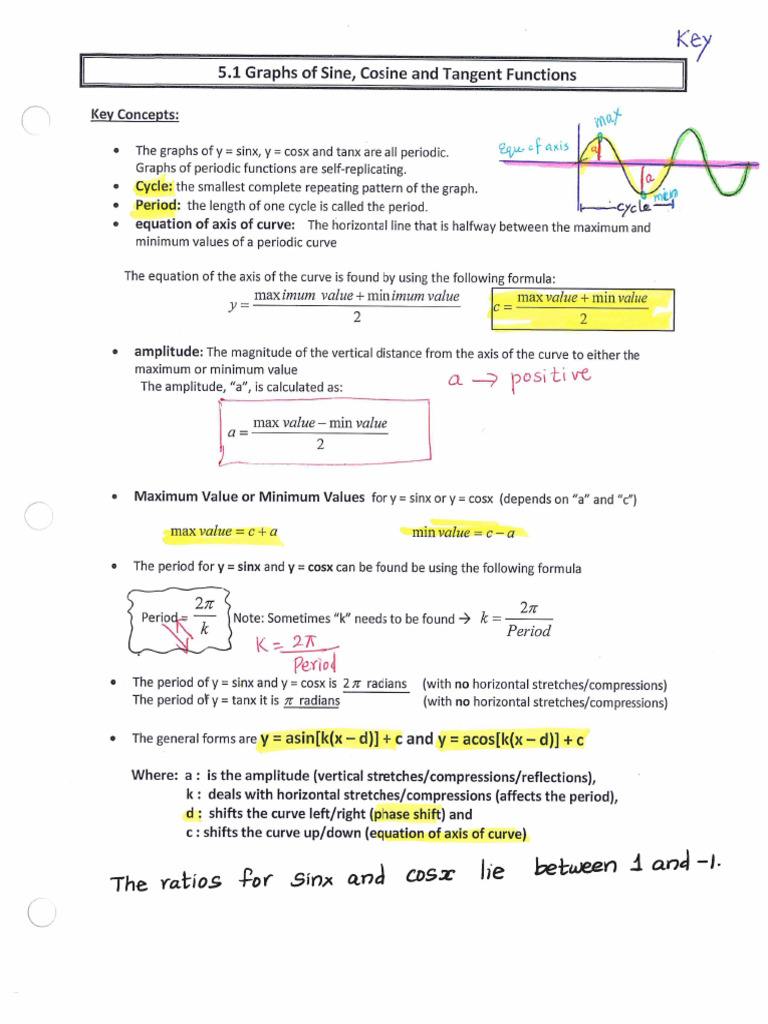 Key
5.1 Graphs of Sine, Cosine and Tangent Functions
Key Concepts:
max
Equ of axis
a
a
min
cycle
• The graphs of y = sinx, y = cosx and tanx are all periodic.
Graphs of periodic functions are self-replicating.
• Cycle: the smallest complete repeating pattern of the graph.
• Period: the length of one cycle is called the period.
• equation of axis of curve: The horizontal line that is halfway between the maximum and
minimum values of a periodic curve
The equation of the axis of the curve is found by using the following formula:
y = (maximum value + minimum value) / 2 c = (max value + min value) / 2
• amplitude: The magnitude of the vertical distance from the axis of the curve to either the
maximum or minimum value
a → positive
The amplitude, "a", is calculated as:
a = (max value – min value) / 2
• Maximum Value or Minimum Values for y = sinx or y = cosx (depends on "a" and "c")
max value = c + a min value = c – a
• The period for y = sinx and y = cosx can be found be using the following formula
Period = 2π / k Note: Sometimes "k" needs to be found → k = 2π / Period
K = 2π / Period
• The period of y = sinx and y = cosx is 2π radians (with no horizontal stretches/compressions)
The period of y = tanx it is π radians (with no horizontal stretches/compressions)
• The general forms are y = asin[k(x – d)] + c and y = acos[k(x – d)] + c
Where: a : is the amplitude (vertical stretches/compressions/reflections),
k : deals with horizontal stretches/compressions (affects the period),
d : shifts the curve left/right (phase shift) and
c : shifts the curve up/down (equation of axis of curve)
The ratios for sinx and cosx lie between 1 and -1.